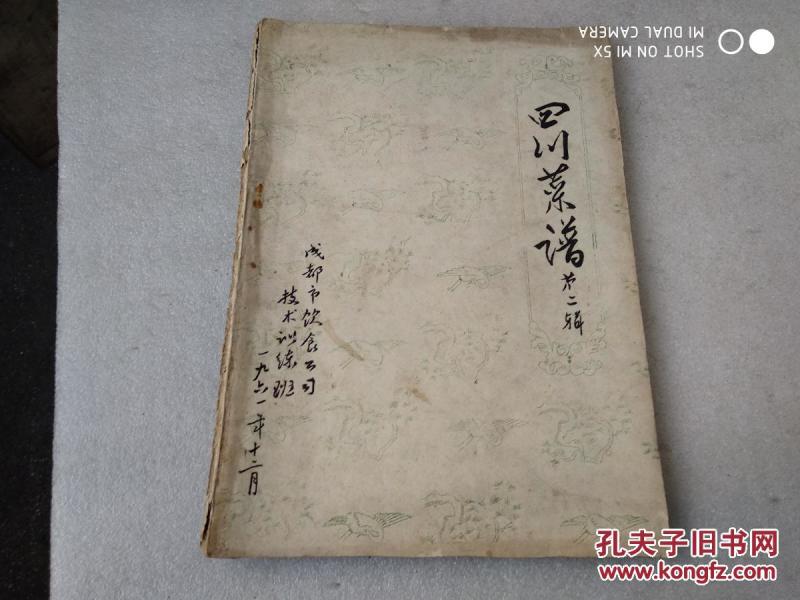 四川菜谱
第二辑
成都市饮食公司
技术训练班
一九六一年十二月
SHOT ON MI 5X
MI DUAL CAMERA
孔夫子旧书网
www.kongfz.com